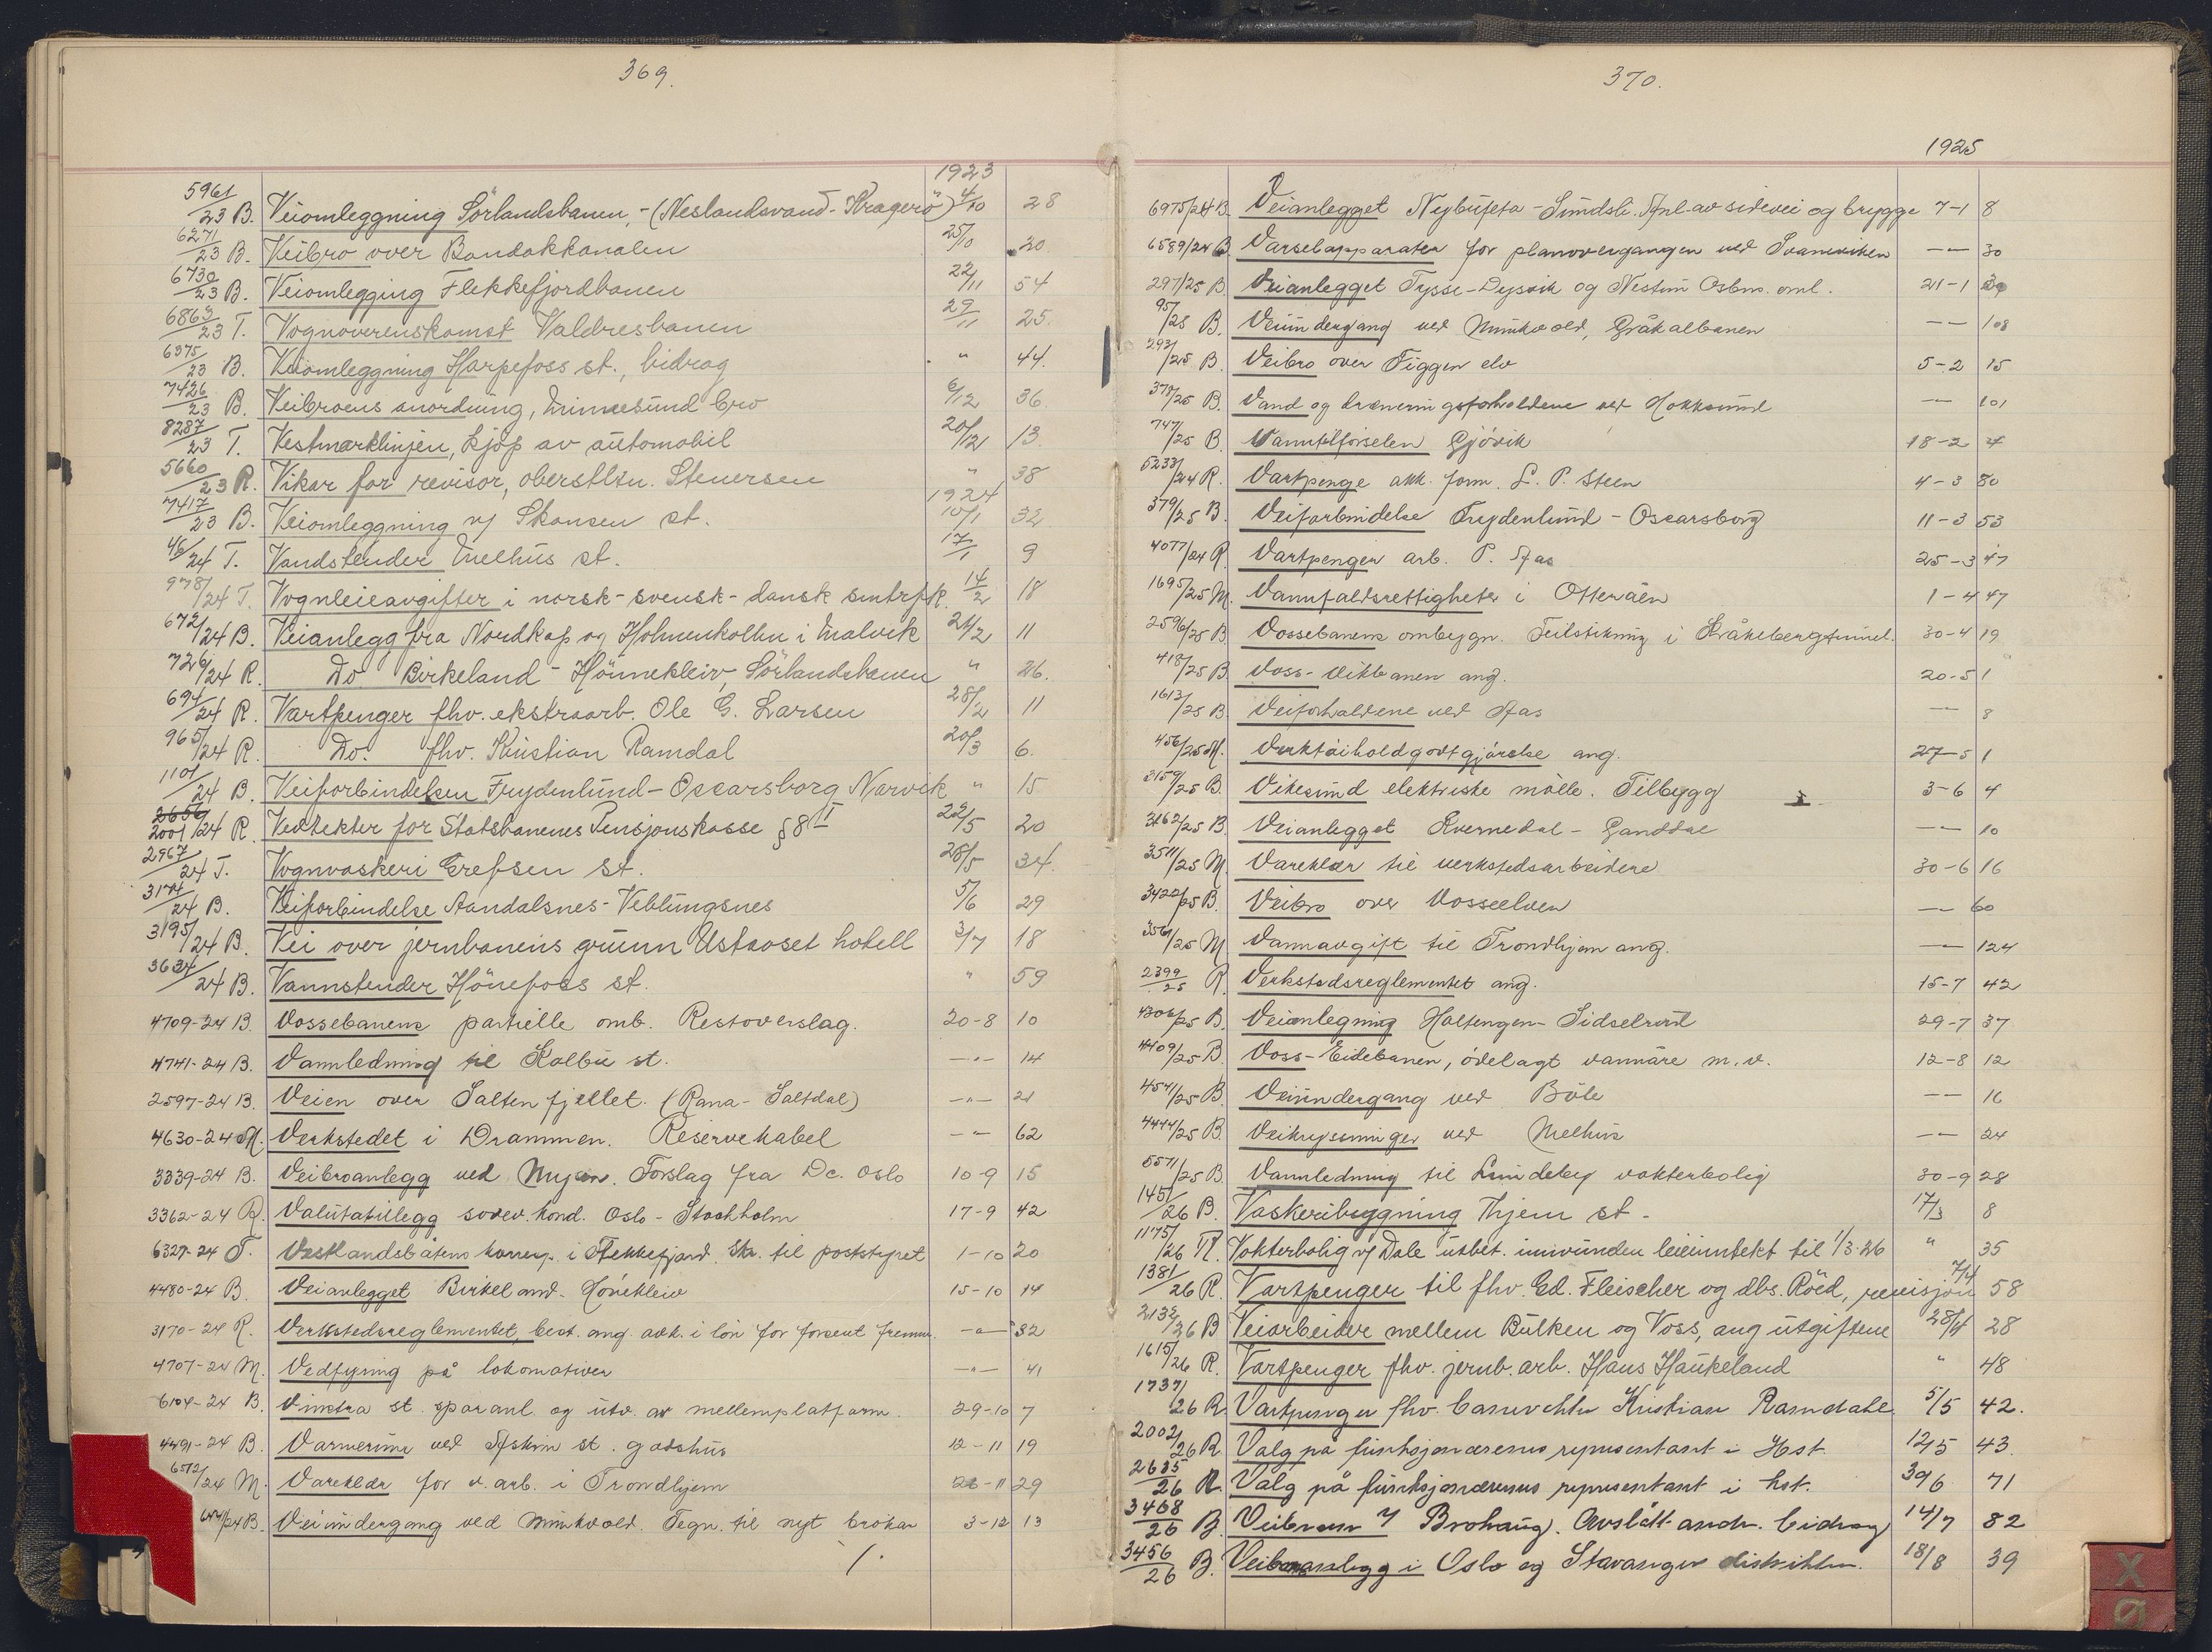 369.
1923
5961/23 B. Veiomleggning Sörlandsbanen,-(Neslandsvand-Kragerö) 4/10 28
6271/23 B. Veibro over Bandakkanalen 25/10 20
6730/23 B. Veiomlegging Flekkefjordbanen 22/11 54
6863/23 T. Vognoverenskomst Valdresbanen 29/11 25.
6375/23 B. Veiomleggning Harpefoss st., bidrag " 44.
7426/23 B. Veibroens anordning, Minnesund bro 6/12 36
8287/23 T. Vestmarklinjen, kjöp av automobil 20/12 13.
5660/23 R. Vikar for revisor, oberstltn. Stenersen " 38
1924
7417/23 B. Veiomleggning v/ Skansen st. 10/1 32
46/24 T. Vandstender Melhus st. 17/1 9
978/24 T. Vognleieavgifter i norsk-svensk-dansk smtrfk. 14/2 18
672/24 B. Veianlegg fra Nordkap og Holmenkollen i Malvik 21/2 11
726/24 R. Do. Birkeland-Hönnekleiv, Sörlandsbanen " 26.
694/24 R. Vartpenger fhv. ekstraarb. Ole G. Larsen 28/2 11
965/24 R. Do. fhv. Kristian Ramdal 20/3 6.
1101/24 B. Veiforbindelsen Frydenlund-Oscarsborg Narvik " 15
2001/24 R. Vedtekter for Statsbanenes Pensjonskasse § 8 II 22/5 20
2967/24 T. Vognvaskeri Grefsen st. 28/5 34.
3174/24 B. Veiforbindelse Aandalsnes-Veblungsnes 5/6 29
3195/24 B. Vei over jernbanens grunn Ustaoset hotell 3/7 18
3634/24 B. Vannstender Hönefoss st. " 59
4709-24 B. Vossebanens partielle omb. Restoverslag. 20-8 10
4741-24 B. Vannledning til Kolbu st. -"- 14
2597-24 B. Veien over Saltenfjellet. (Rana-Saltdal) -"- 21
4630-24 M. Verkstedet i Drammen. Reservekabel -"- 62
3339-24 B. Veibroanlegg ved Mysen. Forslag fra Dc. Oslo 10-9 15
3362-24 R. Valutatillegg sovev. kond. Oslo-Stockholm 17-9 42
6327-24 T. Vestlandsbåtens korresp. i Flekkefjord. Skr. til poststyret 1-10 20
4480-24 B. Veianlegget Birkeland-Hönekleiv 15-10 14
3170-24 R. Verkstedsreglementet, best. ang. avk. i lön for forsent fremm. -"- 32
4707-24 M. Vedfyring på lokomotiver -"- 41
6104-24 B. Vinstra st. sporanl. og utv. av mellemplatform. 29-10 7
4491-24 B. Varmerum ved Askim st. godshus 12-11 19
6512/24 M. Vareklær for v.arb. i Trondhjem 26-11 29
B. Veiundergang ved Munkvold. Tegn. til nyt brokar 3-12 13
/.
370.
1925
6975/24 B Veianlegget Nybuseta-Sundsli. Anl. av sidevei og brygge 7-1 8
6589/24 B Varselapparater for planovergangen ved Svaneviken -"- 30
297/25 B Veianlegget Tysse-Dysvik og Nestun Osbn. oml. 21-1
95/25 B. Veiundergang ved Munkvold, Gråkalbanen -"- 108
293/25 B Veibro over Figgen elv 5-2 15
370/25 B. Vand og dreneringsforholdene ved Hokksund -"- 101
747/25 B. Vanntilförselen Gjövik 18-2 4
5233/24 R. Vartpenge akk. form. L. P. Steen 4-3 80
379/25 B. Veiforbindelse Frydenlund-Oscarsborg 11-3 53
4077/24 R. Vartpenger arb. P. Aas 25-3 47
1695/25 M. Vannfaldsrettigheter i Otteråen 1-4 47
2596/25 B Vossebanens ombygn. Feilstikning i Kråkebergtunnel. 30-4 19
418/25 B. Voss-Eidebanen ang. 20-5 1
1613/25 B. Veiforholdene ved Aas -"- 8
456/25 M. Verktöiholdgodtgjörelse ang. 27-5 1
3159/25 B. Vikesund elektriske mölle. Tilbygg 3-6 4
3162/25 B. Veianlegget Kvernedal-Ganddal -"- 10
3511/25 M. Vareklær til verkstedsarbeidere 30-6 16
3422/25 B. Veibro over Vosseelven -"- 60
3561/25 M Vannavgift til Trondhjem ang. -"- 124
2399/25 R. Verkstedsreglementet ang. 15-7 42
4306/25 B. Veianlegning Haltengen-Sidselrud 29-7 37
4409/25 B. Voss-Eidebanen, ödelagt vannåre m.v. 12-8 12
4541/25 B. Veiundergang ved Böle -"- 16
4444/25 B. Veikrysninger ved Melhus -"- 24
5571/25 B. Vannledning til Lindeby vokterbolig 30-9 28
145/26 B. Vaskeribygning Thjem st- 17/3 8
1175/26 R. Vokterbolig v/ Dale utbet. innvunden leieinntekt til 1/3-26 " 35
1381/26 R. Vartpenger til fhv. Ed. Fleischer og dbs. Röed, revisjon 7/4 58
2132/26 B Veiarbeider mellem Bulken og Voss, ang utgiftene 28/4 28
1615/26 R. Vartpenger fhv. jernb. arb. Hans Haukeland " 48
1737/26 R. Vartpenger fhv. banevokter Kristian Ramdahl 5/5 42.
2002/26 R Valg på funksjonærenes representant i Hst. 12/5 43.
2685/26 R. Valg på funksjonærenes representant i hst. 30/6 71
3468/26 B. Veibroen v/ Brohaug. Avslått andr. bidrag 14/7 82
3456/26 B. Veibroanlegg i Oslo og Stavanger distrikter. 18/8 39
X
Ø